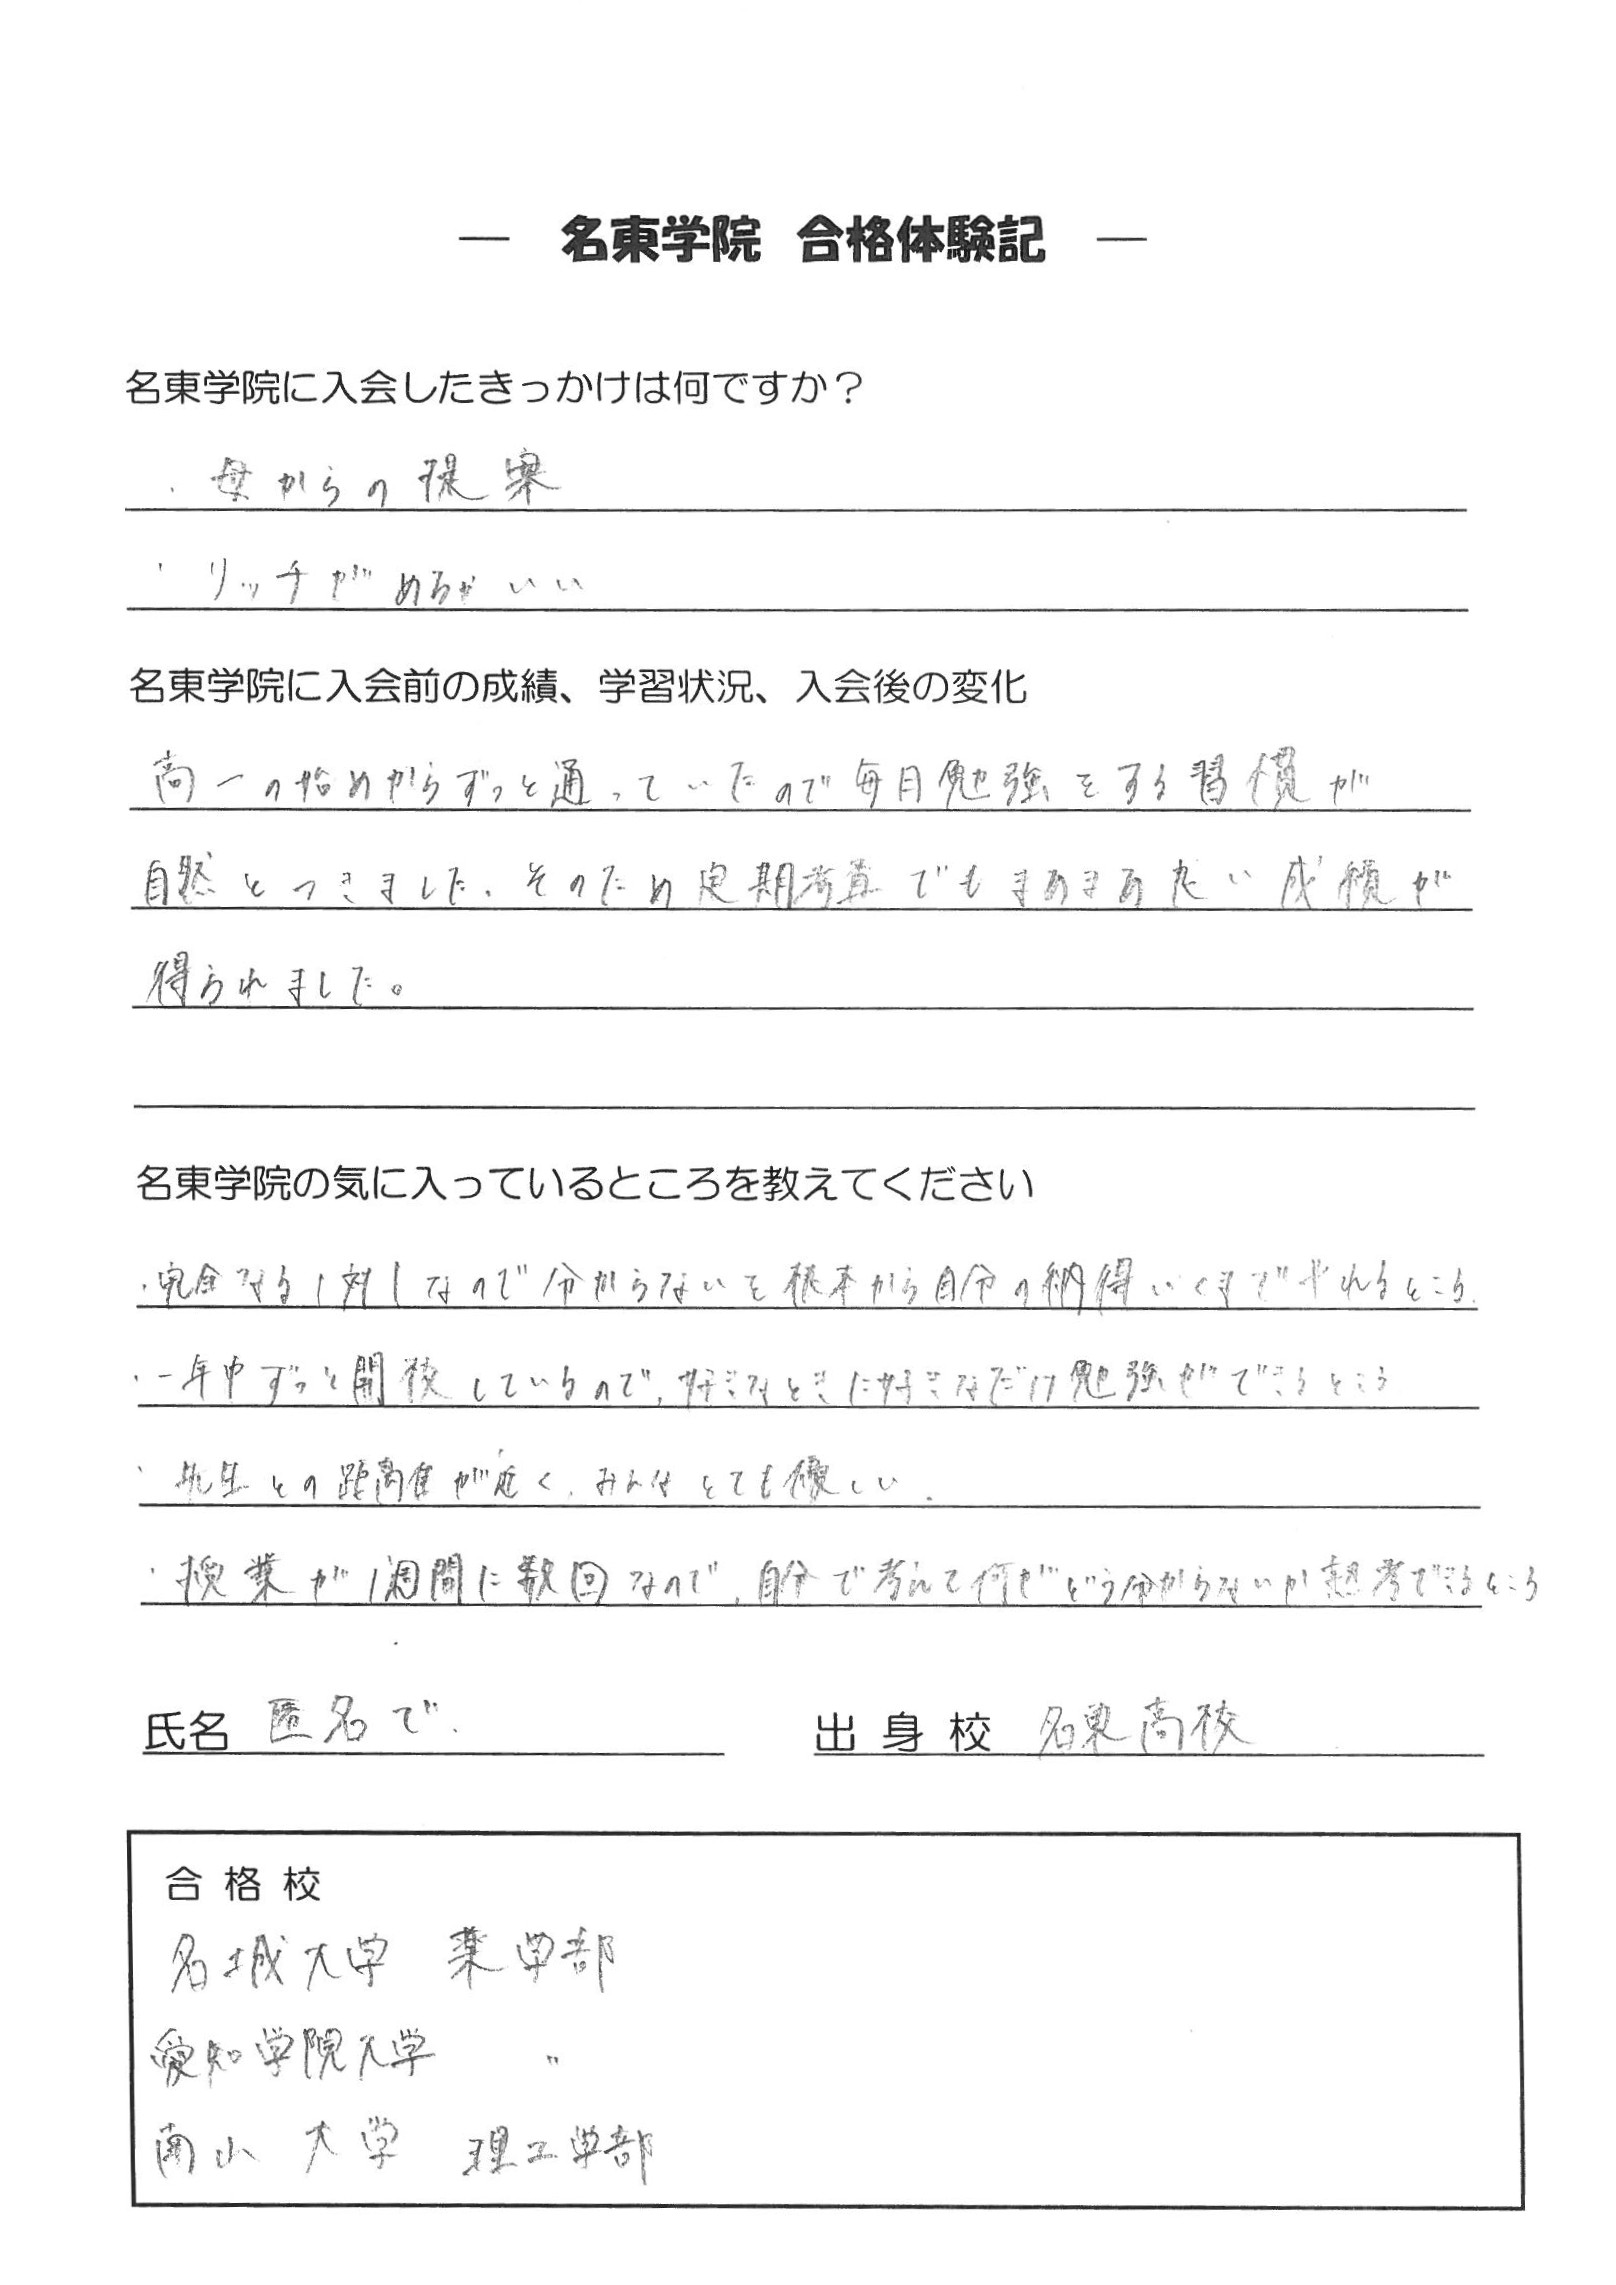 ― 名東学院 合格体験記 ―
名東学院に入会したきっかけは何ですか？
・母からの提案
・リッチがめちゃいい
名東学院に入会前の成績、学習状況、入会後の変化
高一の始めからずっと通っていたので毎日勉強をする習慣が
自然とつきました。そのため定期考査でもまあまあ良い成績が
得られました。
名東学院の気に入っているところを教えてください
・完全なる1対1なので分からないを根本から自分の納得いくまでやれるところ.
・一年中ずっと開校しているので、好きなときに好きなだけ勉強ができるところ
・先生との距離が近く、みんなとても優しい.
・授業が1週間に数回なので、自分で考えて何がどう分からないか思考できるところ
氏名 匿名で. 出身校 名東高校
合格校
名城大学 薬学部
愛知学院大学 〃
南山大学 理工学部